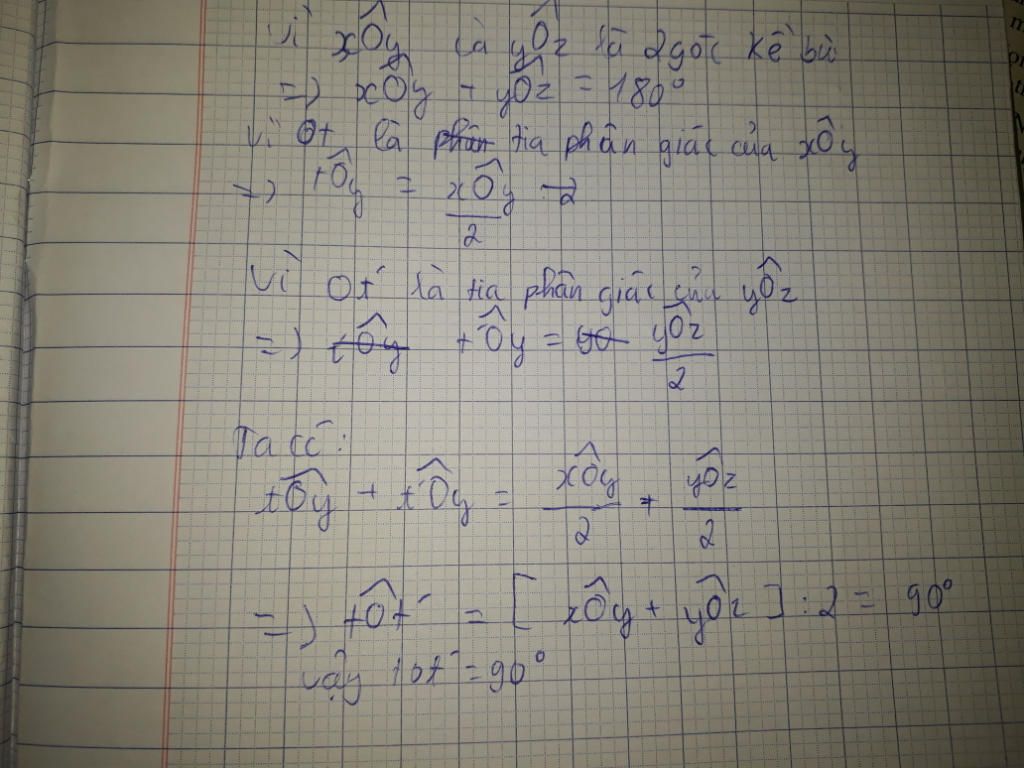 Vì xÔy và yÔz là 2 góc kề bù
=> xÔy + yÔz = 180°
Vì Ot là phân tia phân giác của xÔy
=> tÔy = xÔy / 2 : 2
Vì Ot' là tia phân giác của yÔz
=> tÔy t'Ôy = yÔ yÔz / 2
Ta có:
tÔy + t'Ôy = xÔy / 2 + yÔz / 2
=> tÔt' = [ xÔy + yÔz ] : 2 = 90°
Vậy tOt' = 90°